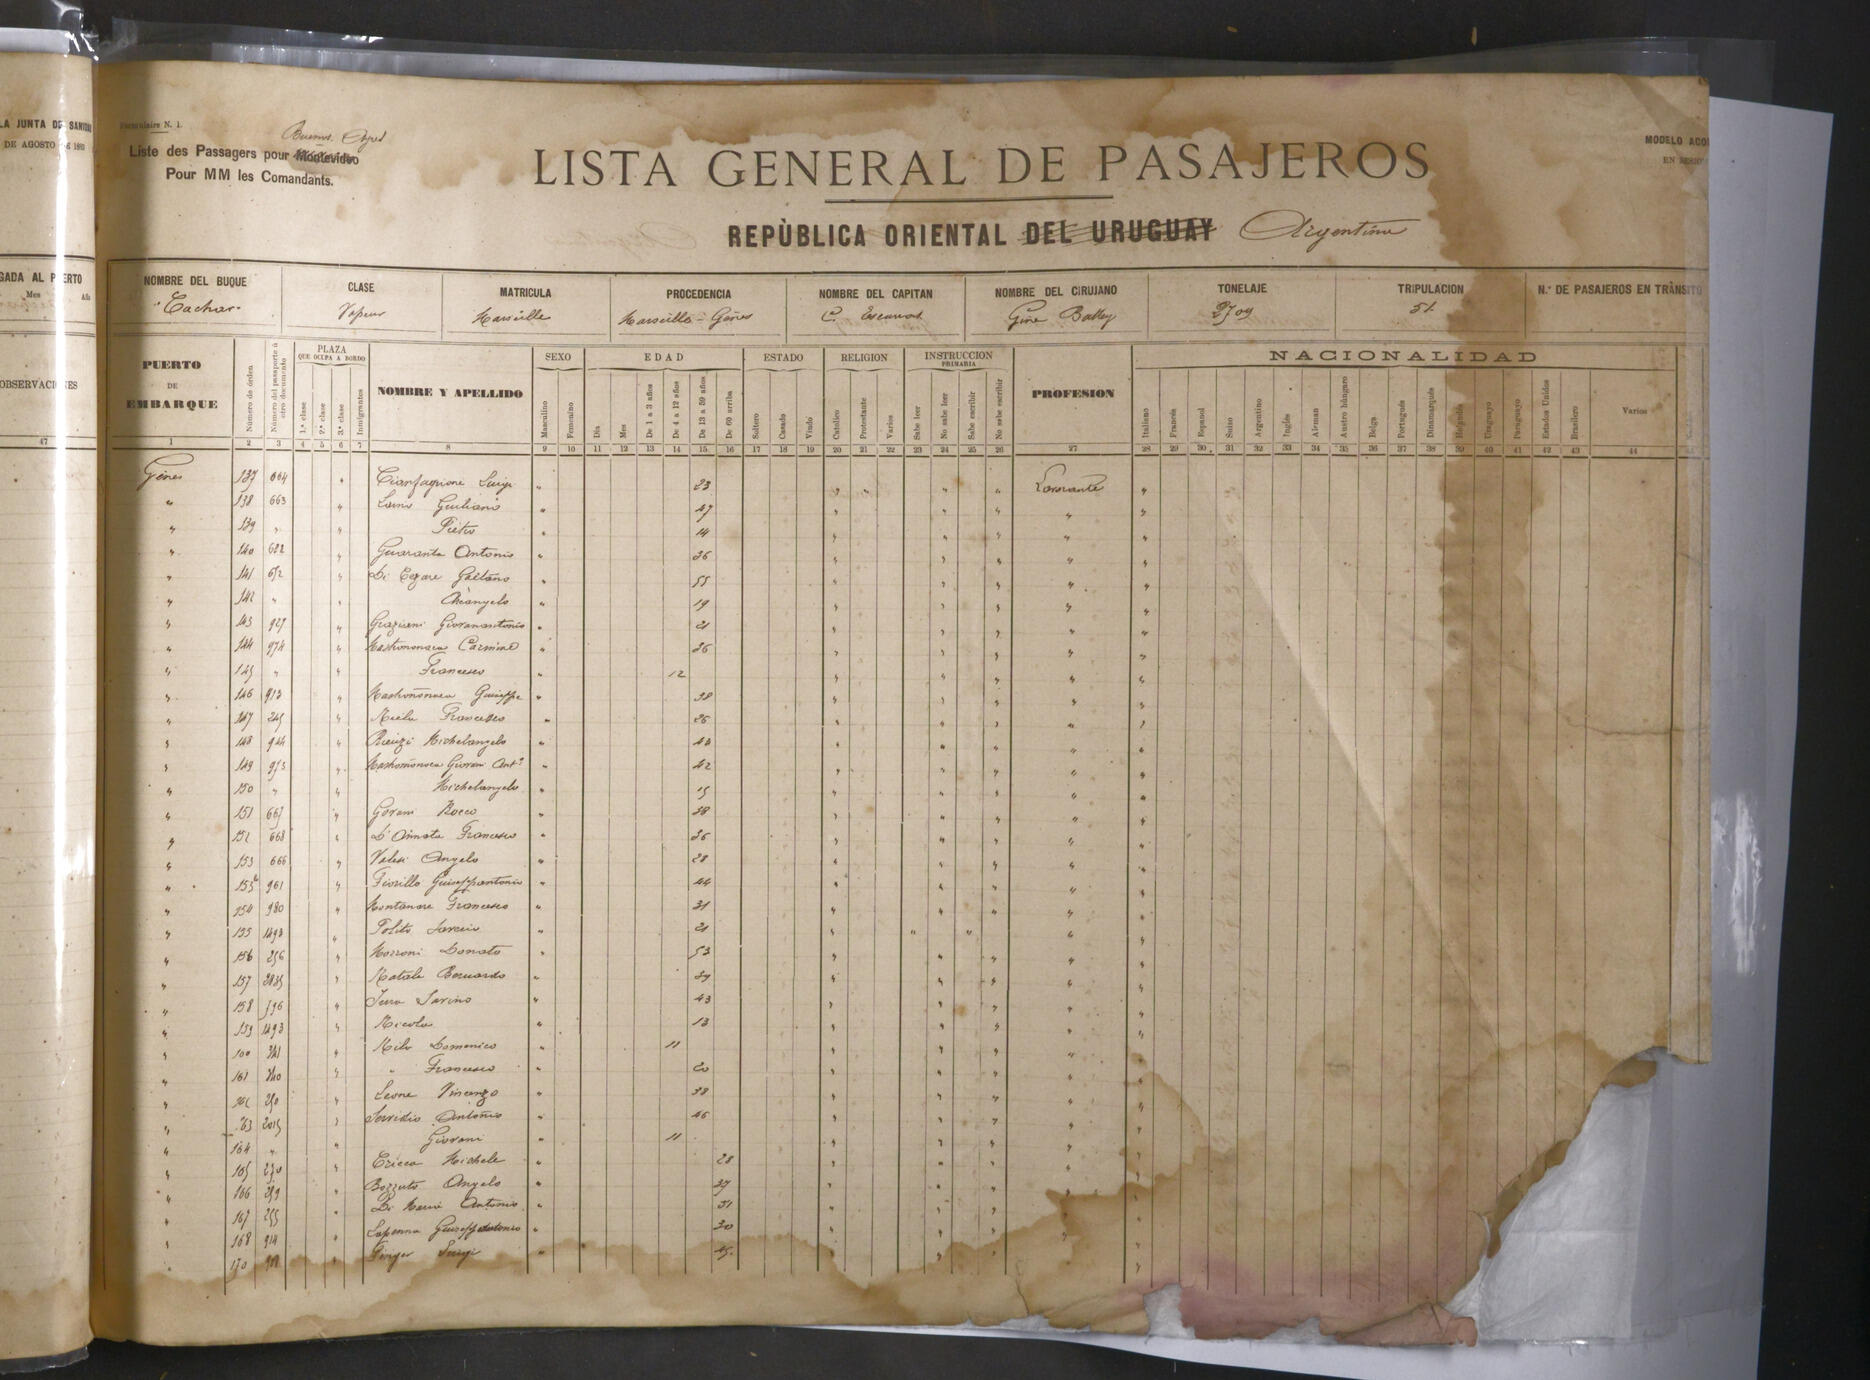 LA JUNTA DE SANIDAD
DE AGOSTO DE 18
GADA AL PUERTO
Mes Año
OBSERVACIONES
47
Formulaire N. 1.
Buenos Ayres
Liste des Passagers pour Montevideo
Pour MM les Comandants.
LISTA GENERAL DE PASAJEROS
REPÙBLICA ORIENTAL DEL URUGUAY Argentina
MODELO ACO
EN
NOMBRE DEL BUQUE CLASE MATRICULA PROCEDENCIA NOMBRE DEL CAPITAN NOMBRE DEL CIRUJANO TONELAJE TRIPULACION N.º DE PASAJEROS EN TRÀNSITO
"Cachar" Vapeur Marseille Marseille-Gênes C. Escarras 2709 51
PUERTO DE EMBARQUE
Número de órden
Número del pasaporte ú otro documento
PLAZA QUE OCUPA A BORDO
1.ª clase 2.ª clase 3.ª clase Inmigrantes
NOMBRE Y APELLIDO
SEXO
Masculino Femenino
EDAD
Dia Mes De 1 a 3 años De 4 a 12 años De 13 a 59 años De 60 arriba
ESTADO
Soltero Casado Viudo
RELIGION
Catolico Protestante Varios
INSTRUCCION PRIMARIA
Sabe leer No sabe leer Sabe escribir No sabe escribir
PROFESION
NACIONALIDAD
Italiano Francés Espanol Suizo Argentino Inglés Aleman Austro húngaro Belga Portugués Dinamarqués Holandés Uruguayo Paraguayo Estados Unidos Brasilero Varios
1 2 3 4 5 6 7 8 9 10 11 12 13 14 15 16 17 18 19 20 21 22 23 24 25 26 27 28 29 30 31 32 33 34 35 36 37 38 39 40 41 42 43 44
Gênes 137 664 " Cianfaglione Luigi " 23 " " " " "
" 138 663 " Giuliano " 47 " " " " "
" 139 " " Pietro " 14 " " " " "
" 140 622 " Guaranta Antonio " 36 " " " " "
" 141 652 " Di Cesare Gaetano " 55 " " " " "
" 142 " " " 19 " " " " "
" 143 927 " Graziani Giovanantonio " 21 " " " " "
" 144 974 " Mastromonaco Carmine " 36 " " " " "
" 145 " " Francesco " 12 " " " " "
" 146 913 " Mastromonaco Giuseppe " 38 " " " " "
" 147 245 " Francesco " 26 " " " " "
" 148 944 " Rienzi Michelangelo " 43 " " " " "
" 149 973 " Mastromonaco Giovan Ant.º " 42 " " " " "
" 150 " " Michelangelo " 15 " " " " "
" 151 667 " Rocco " 38 " " " " "
" 152 668 " Francesco " 26 " " " " "
" 153 666 " Angelo " 28 " " " " "
" 153b 961 " Fiorillo Giuseppantonio " 44 " " " " "
" 154 980 " Montanaro Francesco " 31 " " " " "
" 155 1493 " Polito " 21 " " " " "
" 156 256 " Donato " 53 " " " " "
" 157 " Natale Bernardo " 39 " " " " "
" 158 596 " Serra Savino " 43 " " " " "
" 159 1493 " Nicola " 13 " " " " "
" 160 341 " Domenico " 11 " " " " "
" 161 340 " " Francesco " 20 " " " " "
" 162 250 " Leone Vincenzo " 38 " " " " "
" 163 2015 " Servidio Antonio " 46 " " " " "
" 164 " " Giovani " 11 " " " " "
" 165 270 " Michele " 28 " " " " "
" 166 259 " Bozzuto Angelo " 37 " " " " "
" 167 255 " Antonio " 31 " " " " "
" 168 914 " Lapenna Giuseppantonio " 30 " " " " "
" 170 " Luigi " 45 " " " "